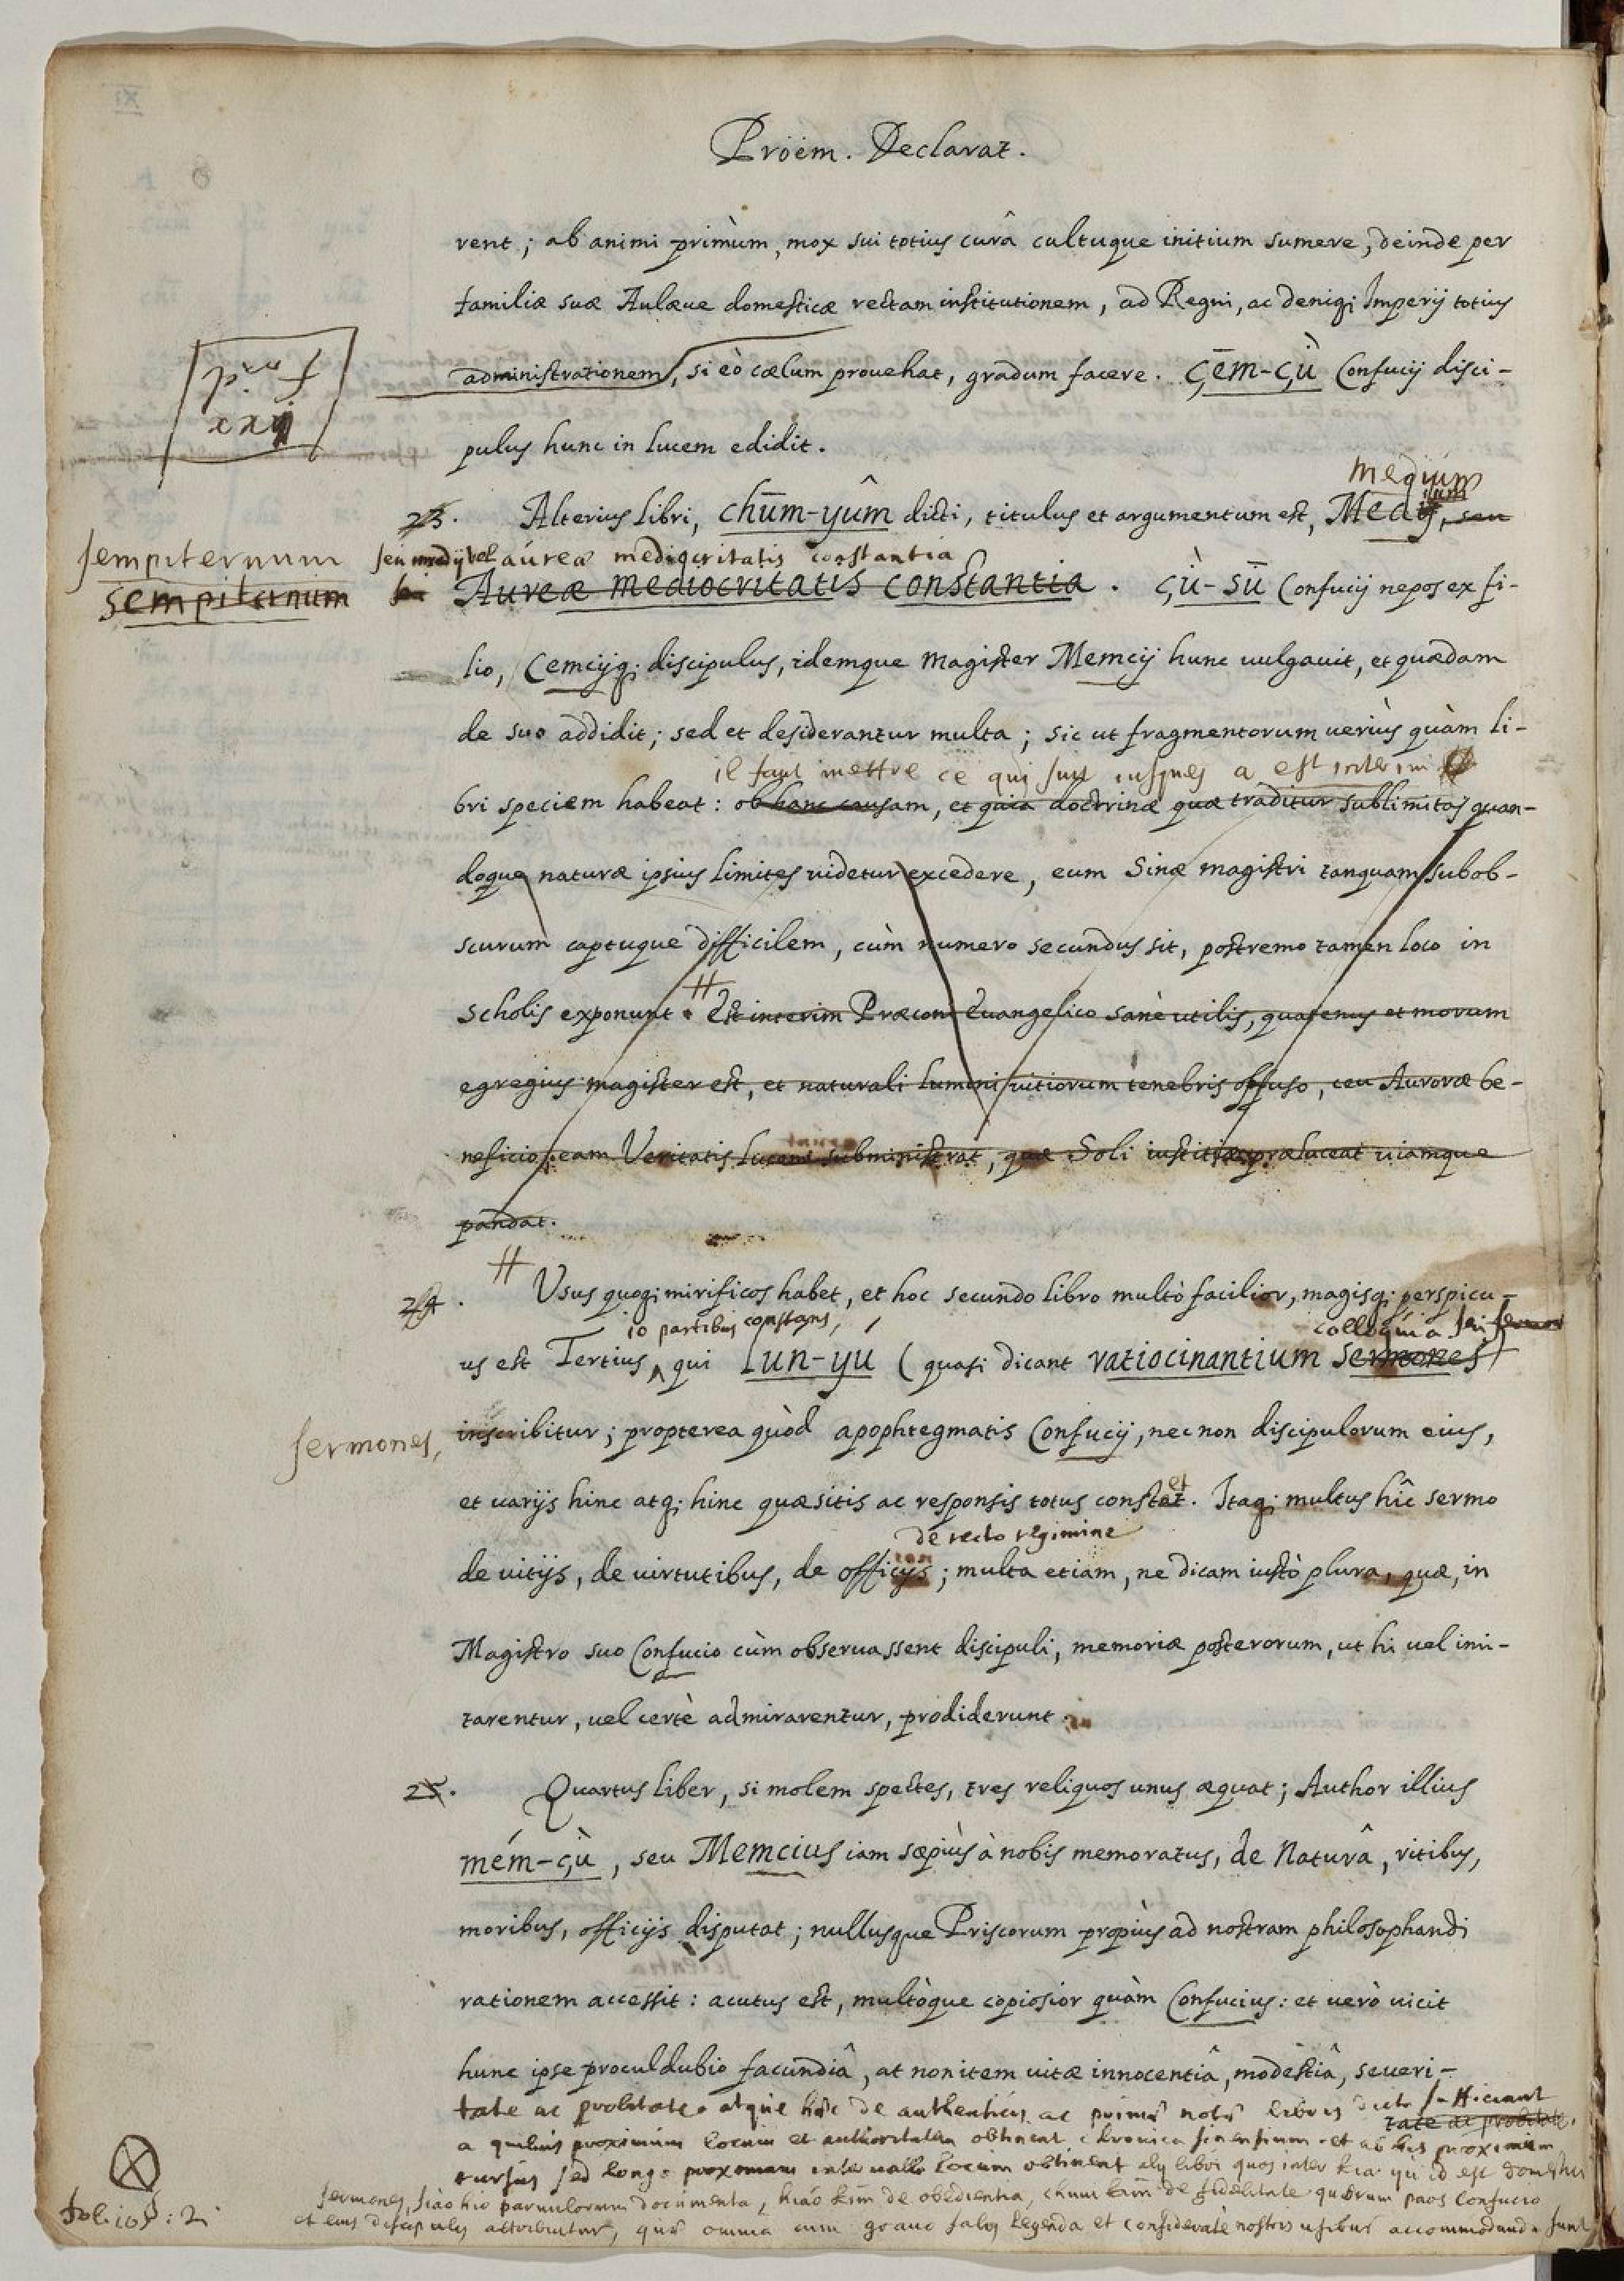 Pröem. Declarat.
rent; ab animi primùm, mox sui totius curâ cultuque initium sumere, deinde per
familiæ suæ Aulæue domesticæ rectam institutionem, ad Regni, ac deniq; Imperij totius
administrationem, si eò cœlum prouehat, gradum facere. Çēm-çù Confucij disci-
pulus hunc in lucem edidit.
medium
23. Alterius libri, chūm-yûm dicti, titulus et argumentum est, Medij, seu
sempiternum seu medij vel aúrea mediocritatis constantia
sempiternum seu Aureæ mediocritatis constantia. çù-sū Confucij nepos ex fi-
lio, Cemcijq; discipulus, idemque magister Memcij hunc uulgauit, et quædam
de suo addidit; sed et desiderantur multa; sic ut fragmentorum ueriùs quàm li-
il faut mettre ce qui suit iusques a est interim
bri speciem habeat: ob hanc causam, et quia doctrinæ quæ traditur sublimitas quan-
doque naturæ ipsius limites uidetur excedere, eum Sinæ magistri tanquam subob-
scurum captuque difficilem, cùm numero secundus sit, postremo tamen loco in
scholis exponunt. # Est interim Præconi Euangelico sanè utilis, quatenus et morum
egregius magister est, et naturali lumini uitiorum tenebris offuso, ceu Auroræ be-
neficio, eam Veritatis lucem subministrat, quæ Soli iustitiæ præluceat uiamque
pandat.
#
24. Vsus quoq; mirificos habet, et hoc secundo libro multò facilior, magisq; perspicu-
10 partibus constans, colloquia seu sermones
us est Tertius qui Lun-yù (quasi dicant ratiocinantium sermones)
sermones, inscribitur; propterea quòd apophtegmatis Confucij, nec non discipulorum eius,
et uarijs hinc atq; hinc quæsitis ac responsis totus constat. Itaq; multus hîc sermo
de recto regimine
de uitijs, de uirtutibus, de officijs; multa etiam, ne dicam iustò plura, quæ, in
Magistro suo Confucio cùm obseruassent discipuli, memoriæ posterorum, ut hi uel imi-
tarentur, uel certè admirarentur, prodiderunt.
25. Quartus liber, si molem spectes, tres reliquos unus æquat; Author illius
mém-çù, seu Memcius iam sæpiùs à nobis memoratus, de Naturâ, ritibus,
moribus, officijs disputat; nullusque Priscorum propiùs ad nostram philosophandi
rationem accessit: acutus est, multòque copiosior quàm Confucius: et uerò uicit
hunc ipse proculdubio facundiâ, at non item uitæ innocentiâ, modestiâ, seueri-
tate ac probitate. atque hæc de authenticis ac primæ notæ libris dicta sufficiant
tate ac probitate.
a quibus proximum locum et authoritatem obtinent chronica sinensium. et ab his proximum
rursus sed longo proximum interuallo locum obtinent alij libri quos inter kia yù id est domestici
sermones, siào hio paruulorum documenta, hiáo kim de obedientia, chum kim de fidelitate quorum Confucio
et eius discipulis attribuuntur, quæ omnia cum grano salis legenda et considerate nostris usibus accommodanda sunt